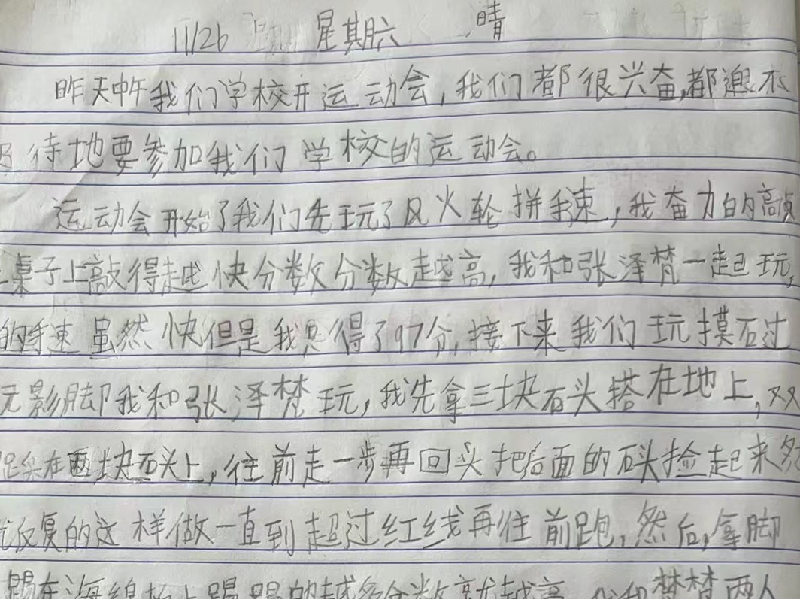 11/26 星期六 晴
昨天中午我们学校开运动会,我们都很兴奋,都迫不
及待地要参加我们学校的运动会。
运动会开始了我们先玩了风火轮拼手速,我奋力的敲
桌子上敲得越快分数分数越高,我和张泽梵一起玩,
的手速虽然快但是我只得了97分,接下来我们玩摸石过
无影脚我和张泽梵玩,我先拿三块石头搭在地上,双
踩在两块石头上,往前走一步再回头把后面的石头捡起来
反复的这样做一直到超过红线再往前跑,然后,拿脚
踢在海绵 上踢 踢的越多分数就越高 和梵梵两人